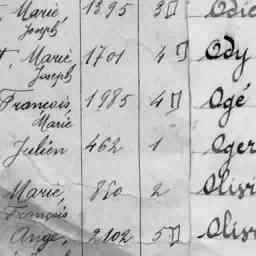 Marie, 1395 3
Joseph
Marie 1701 4 Ody
Joseph
François, 1985 4 Ogé
Marie
Julien 462 1 Oger
Marie, 2
François
Ange, 2102 5